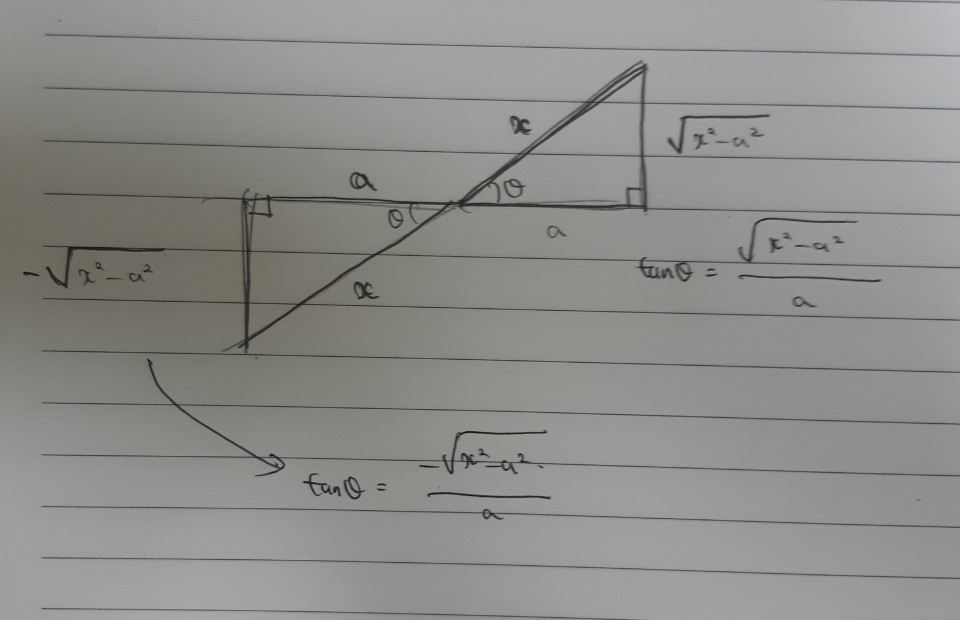 x
√x²-a²
a
θ
θ
a
-√x²-a²
x
tanθ = √x²-a² / a
tanθ = -√x²-a² / a